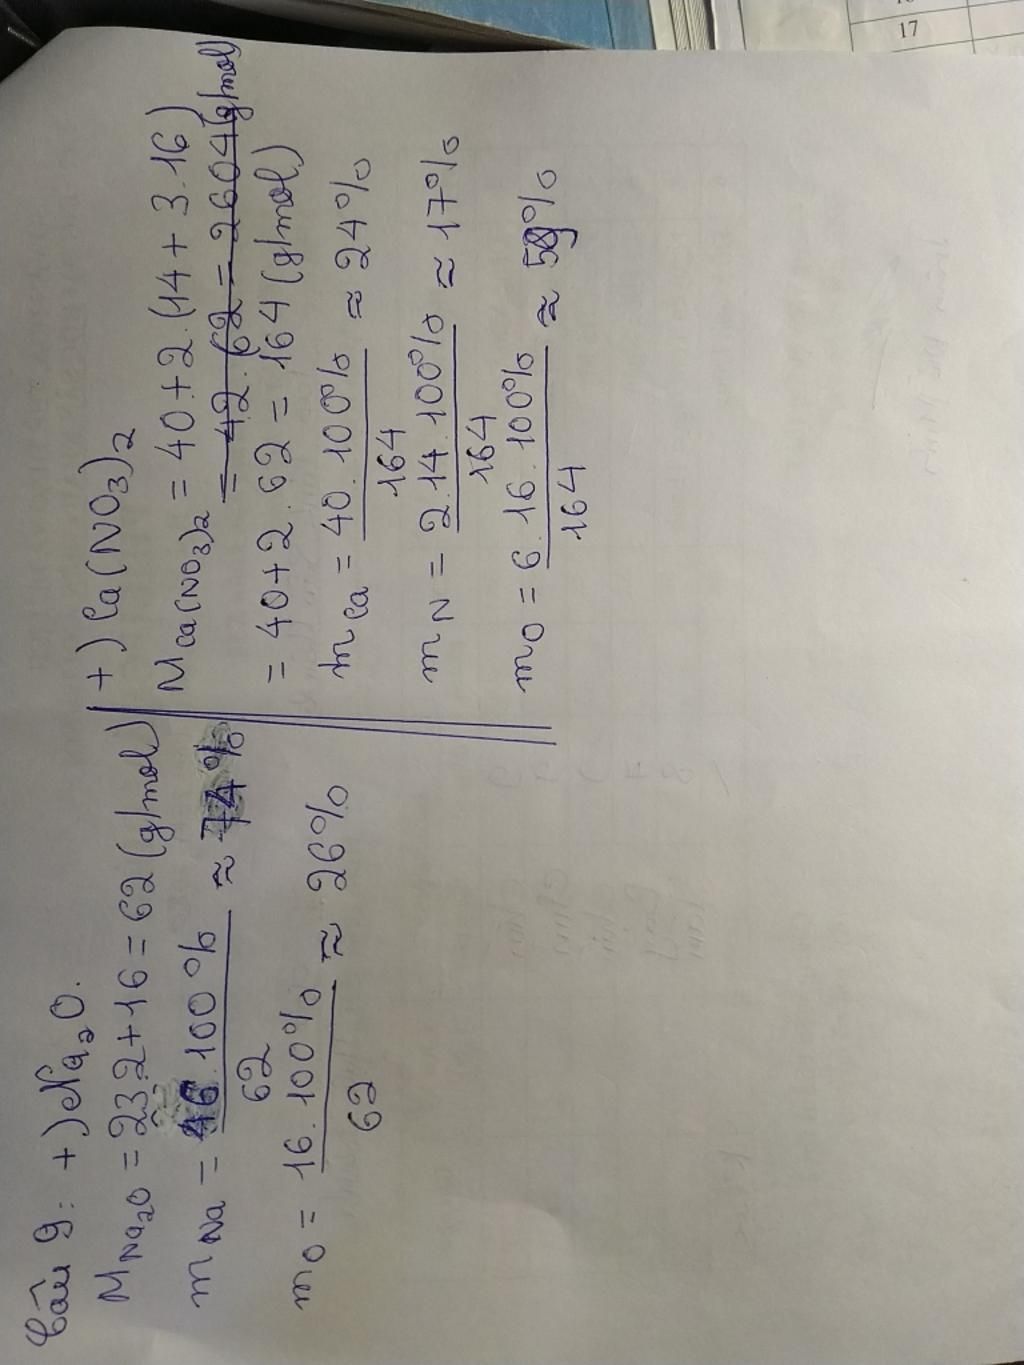 Câu 9: +) Na₂O.
M Na₂O = 23.2 + 16 = 62 (g/mol)
m Na = 46.100% / 62 ≈ 74%
m O = 16.100% / 62 ≈ 26%
+) Ca(NO₃)₂
M Ca(NO₃)₂ = 40 + 2.(14 + 3.16)
= 42.62 = 2604 (g/mol)
= 40 + 2.62 = 164 (g/mol)
m Ca = 40.100% / 164 ≈ 24%
m N = 2.14.100% / 164 ≈ 17%
m O = 6.16.100% / 164 ≈ 59%
17